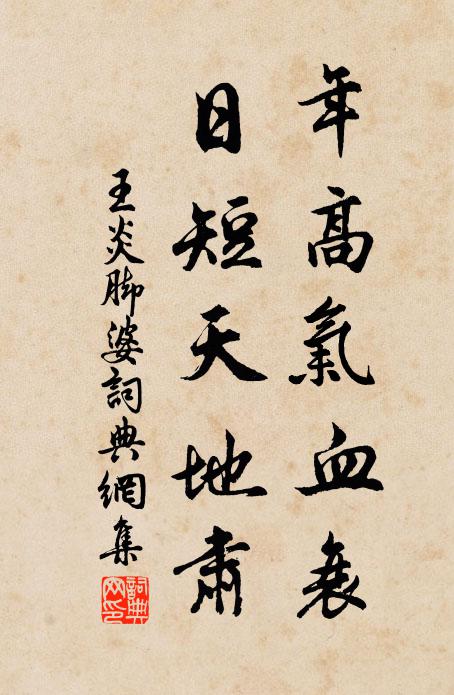 年高氣血衰
日短天地肅
王炎脚婆詞典網集
詞典网印